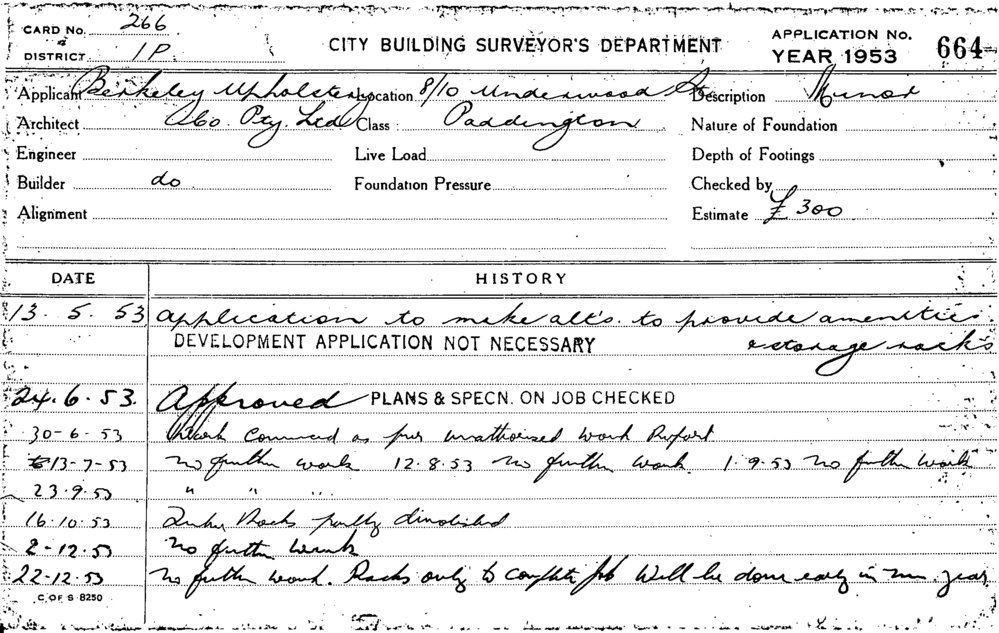 CARD No. 266
DISTRICT 1P.
CITY BUILDING SURVEYOR'S DEPARTMENT
APPLICATION No.
YEAR 1953
664
Applicant Berkeley Upholstery Location 8/10 Underwood St. Description Minor
Architect Co. Pty. Ltd Class Paddington Nature of Foundation
Engineer Live Load Depth of Footings
Builder do Foundation Pressure Checked by
Alignment Estimate £300
DATE HISTORY
13. 5. 53 Application to make alt's. to provide amenities
DEVELOPMENT APPLICATION NOT NECESSARY & storage racks
24.6.53. Approved PLANS & SPECN. ON JOB CHECKED
30-6-53 Work as per Work Report
13-7-53 No further work 12.8.53 No further work. 1.9.53 No further work
23.9.53 " " "
16.10.53 Racks partly
2-12.53 No further work
22-12.53 No further work. Racks only to complete job Will be done early in new year
C OF S 8250